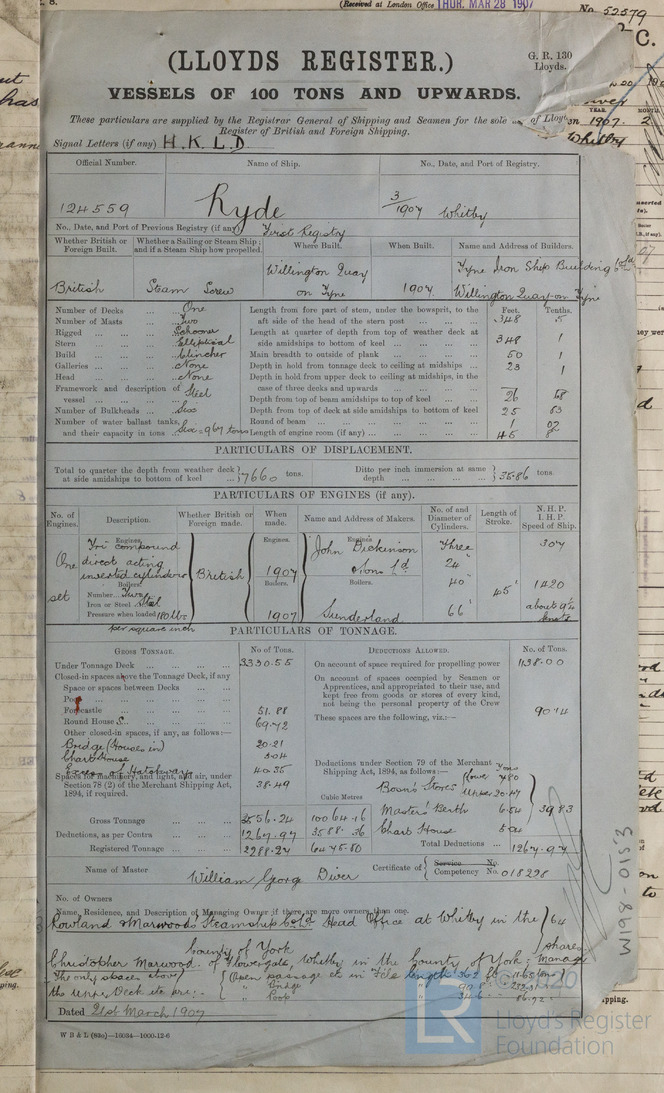 (Received at London Office THUR. MAR 28 1907
No. 52579
(LLOYDS REGISTER.)
G. R. 130
Lloyds.
VESSELS OF 100 TONS AND UPWARDS.
These particulars are supplied by the Registrar General of Shipping and Seamen for the sole of Lloyd
Register of British and Foreign Shipping.
Signal Letters (if any) H.K.L.D.
Official Number. Name of Ship. No., Date, and Port of Registry.
124559 Ryde 3/1907 Whitby
No., Date, and Port of Previous Registry (if any) First Registry
Whether British or Foreign Built. Whether a Sailing or Steam Ship; and if a Steam Ship how propelled. Where Built. When Built. Name and Address of Builders.
British Steam Screw Willington Quay on Tyne 1907 Tyne Iron Ship Building Willington Quay on Tyne
Number of Decks ... One
Number of Masts ... Two
Rigged ... Schooner
Stern ... Elliptical
Build ... Clincher
Galleries ... None
Head ... None
Framework and description of vessel ... Steel
Number of Bulkheads ... Six
Number of water ballast tanks, and their capacity in tons ... Six = 967 tons
Feet. Tenths.
Length from fore part of stem, under the bowsprit, to the aft side of the head of the stern post 348 5
Length at quarter of depth from top of weather deck at side amidships to bottom of keel 348 1
Main breadth to outside of plank 50 1
Depth in hold from tonnage deck to ceiling at midships 23 1
Depth in hold from upper deck to ceiling at midships, in the case of three decks and upwards
Depth from top of beam amidships to top of keel 26 68
Depth from top of deck at side amidships to bottom of keel 25 83
Round of beam 1 02
Length of engine room (if any) 45 8
PARTICULARS OF DISPLACEMENT.
Total to quarter the depth from weather deck at side amidships to bottom of keel 7660 tons. Ditto per inch immersion at same depth 35.86 tons.
PARTICULARS OF ENGINES (if any).
No. of Engines. Description. Whether British or Foreign made. When made. Name and Address of Makers. No. of and Diameter of Cylinders. Length of Stroke. N.H.P. I.H.P. Speed of Ship.
Engines. Engines. Engines.
One set
Tri compound
direct acting
inverted cylinders
British 1907 John Dickinson & Sons Ld Three 307
24"
40"
66"
45"
1420
about 9¼ knots
Boilers. Boilers. Boilers.
Number Two
Iron or Steel Steel
Pressure when loaded 180 lbs
per square inch
1907 Sunderland
PARTICULARS OF TONNAGE.
GROSS TONNAGE. No of Tons. DEDUCTIONS ALLOWED. No. of Tons.
Under Tonnage Deck 3330.55
Closed-in spaces above the Tonnage Deck, if any
Space or spaces between Decks
Poop
Forecastle 51.88
Round Houses 69.72
Other closed-in spaces, if any, as follows:—
Bridge (Houses in) 20.21
Chart House 5.04
Excess of Hatchways 40.35
Spaces for machinery, and light, and air, under Section 78 (2) of the Merchant Shipping Act, 1894, if required. 38.49
Cubic Metres
Gross Tonnage 3556.24 10064.16
Deductions, as per Contra 1267.97 3588.36
Registered Tonnage 2288.27 6475.80
On account of space required for propelling power 1138.00
On account of spaces occupied by Seamen or Apprentices, and appropriated to their use, and kept free from goods or stores of every kind, not being the personal property of the Crew 90.14
These spaces are the following, viz.:—
Deductions under Section 79 of the Merchant Shipping Act, 1894, as follows:— Tons
Bosn's Stores lower 7.80
upper 20.47
Master's Berth 6.52
Chart House 5.04
39.83
Total Deductions ... 1267.97
Name of Master William George Diver Certificate of Service No. Competency No. 018298
No. of Owners
Name, Residence, and Description of Managing Owner if there are more owners than one.
Rowland & Marwood's Steamship Co Ld. Head Office at Whitby in the County of York 64 shares
Christopher Marwood of Flowergate, Whitby in the County of York; Manager
The only spaces above the Upper Deck etc are: Open passage
Bridge
Poop
Dated 21st March 1907
W B & L (83n)—10034—1000-12-6
W198-0153
© 2020
LR Lloyd's Register
Foundation